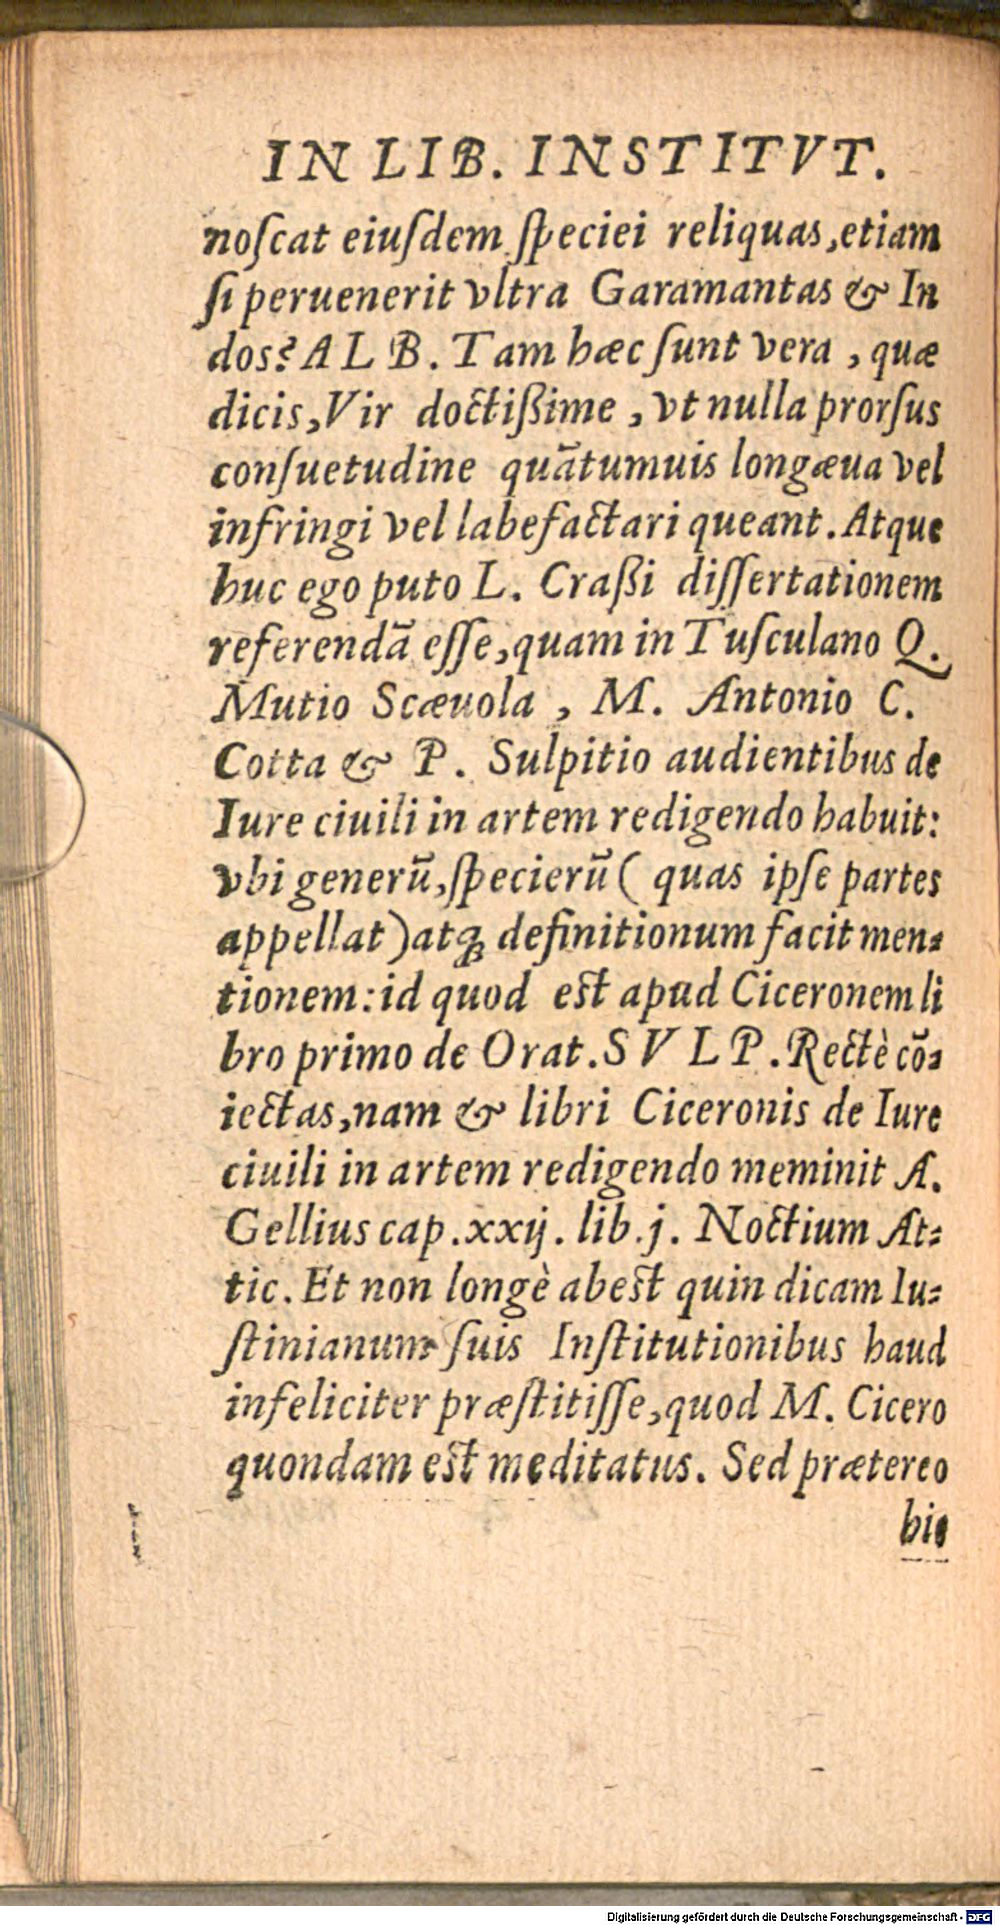 IN LIB. INSTITVT.
noſcat eiuſdem ſpeciei reliquas, etiam
ſi peruenerit vltra Garamantas & In
dos? ALB. Tam hæc ſunt vera, quæ
dicis, Vir doctißime, vt nulla prorſus
conſuetudine quātumuis longæua vel
infringi vel labefactari queant. Atque
huc ego puto L. Craßi diſſertationem
referendā eſſe, quam in Tuſculano Q.
Mutio Scæuola, M. Antonio C.
Cotta & P. Sulpitio audientibus de
Iure ciuili in artem redigendo habuit:
vbi generū, ſpecierū (quas ipſe partes
appellat) atq; definitionum facit men-
tionem: id quod est apud Ciceronem li
bro primo de Orat. SVLP. Rectè cō-
iectas, nam & libri Ciceronis de Iure
ciuili in artem redigendo meminit A.
Gellius cap. xxij. lib. j. Noctium At-
tic. Et non longè abest quin dicam Iu-
ſtinianum ſuis Inſtitutionibus haud
infeliciter præſtitiſſe, quod M. Cicero
quondam est meditatus. Sed prætereo
hic
Digitalisierung gefördert durch die Deutsche Forschungsgemeinschaft - DFG